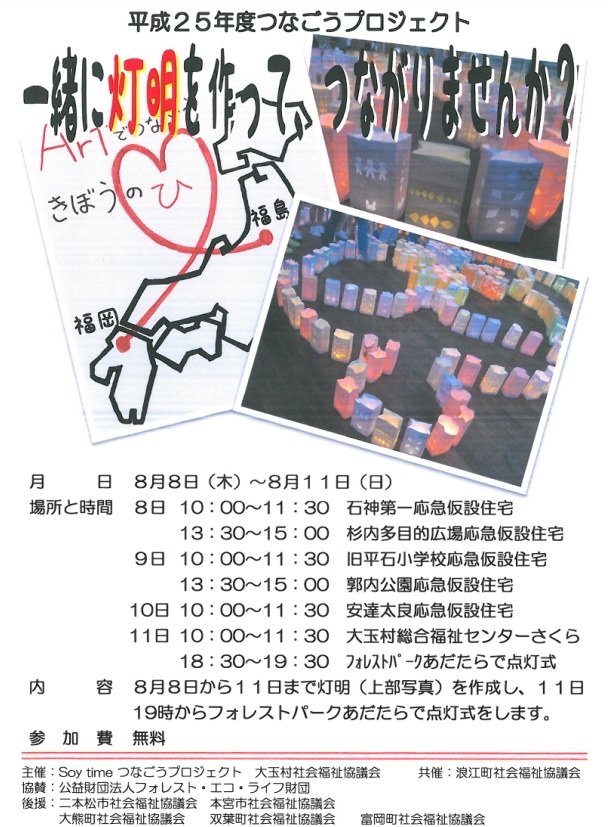 平成25年度つなごうプロジェクト
一緒に灯明を作って つながりませんか?
Artでつなぐ
きぼうのひ
福島
福岡
月 日 8月8日(木)~8月11日(日)
場所と時間 8日 10:00~11:30 石神第一応急仮設住宅
13:30~15:00 杉内多目的広場応急仮設住宅
9日 10:00~11:30 旧平石小学校応急仮設住宅
13:30~15:00 郭内公園応急仮設住宅
10日 10:00~11:30 安達太良応急仮設住宅
11日 10:00~11:30 大玉村総合福祉センターさくら
18:30~19:30 フォレストパークあだたらで点灯式
内 容 8月8日から11日まで灯明(上部写真)を作成し、11日
19時からフォレストパークあだたらで点灯式をします。
参 加 費 無料
主催:Soy time つなごうプロジェクト 大玉村社会福祉協議会 共催:浪江町社会福祉協議会
協賛:公益財団法人フォレスト・エコ・ライフ財団
後援:二本松市社会福祉協議会 本宮市社会福祉協議会
大熊町社会福祉協議会 双葉町社会福祉協議会 富岡町社会福祉協議会